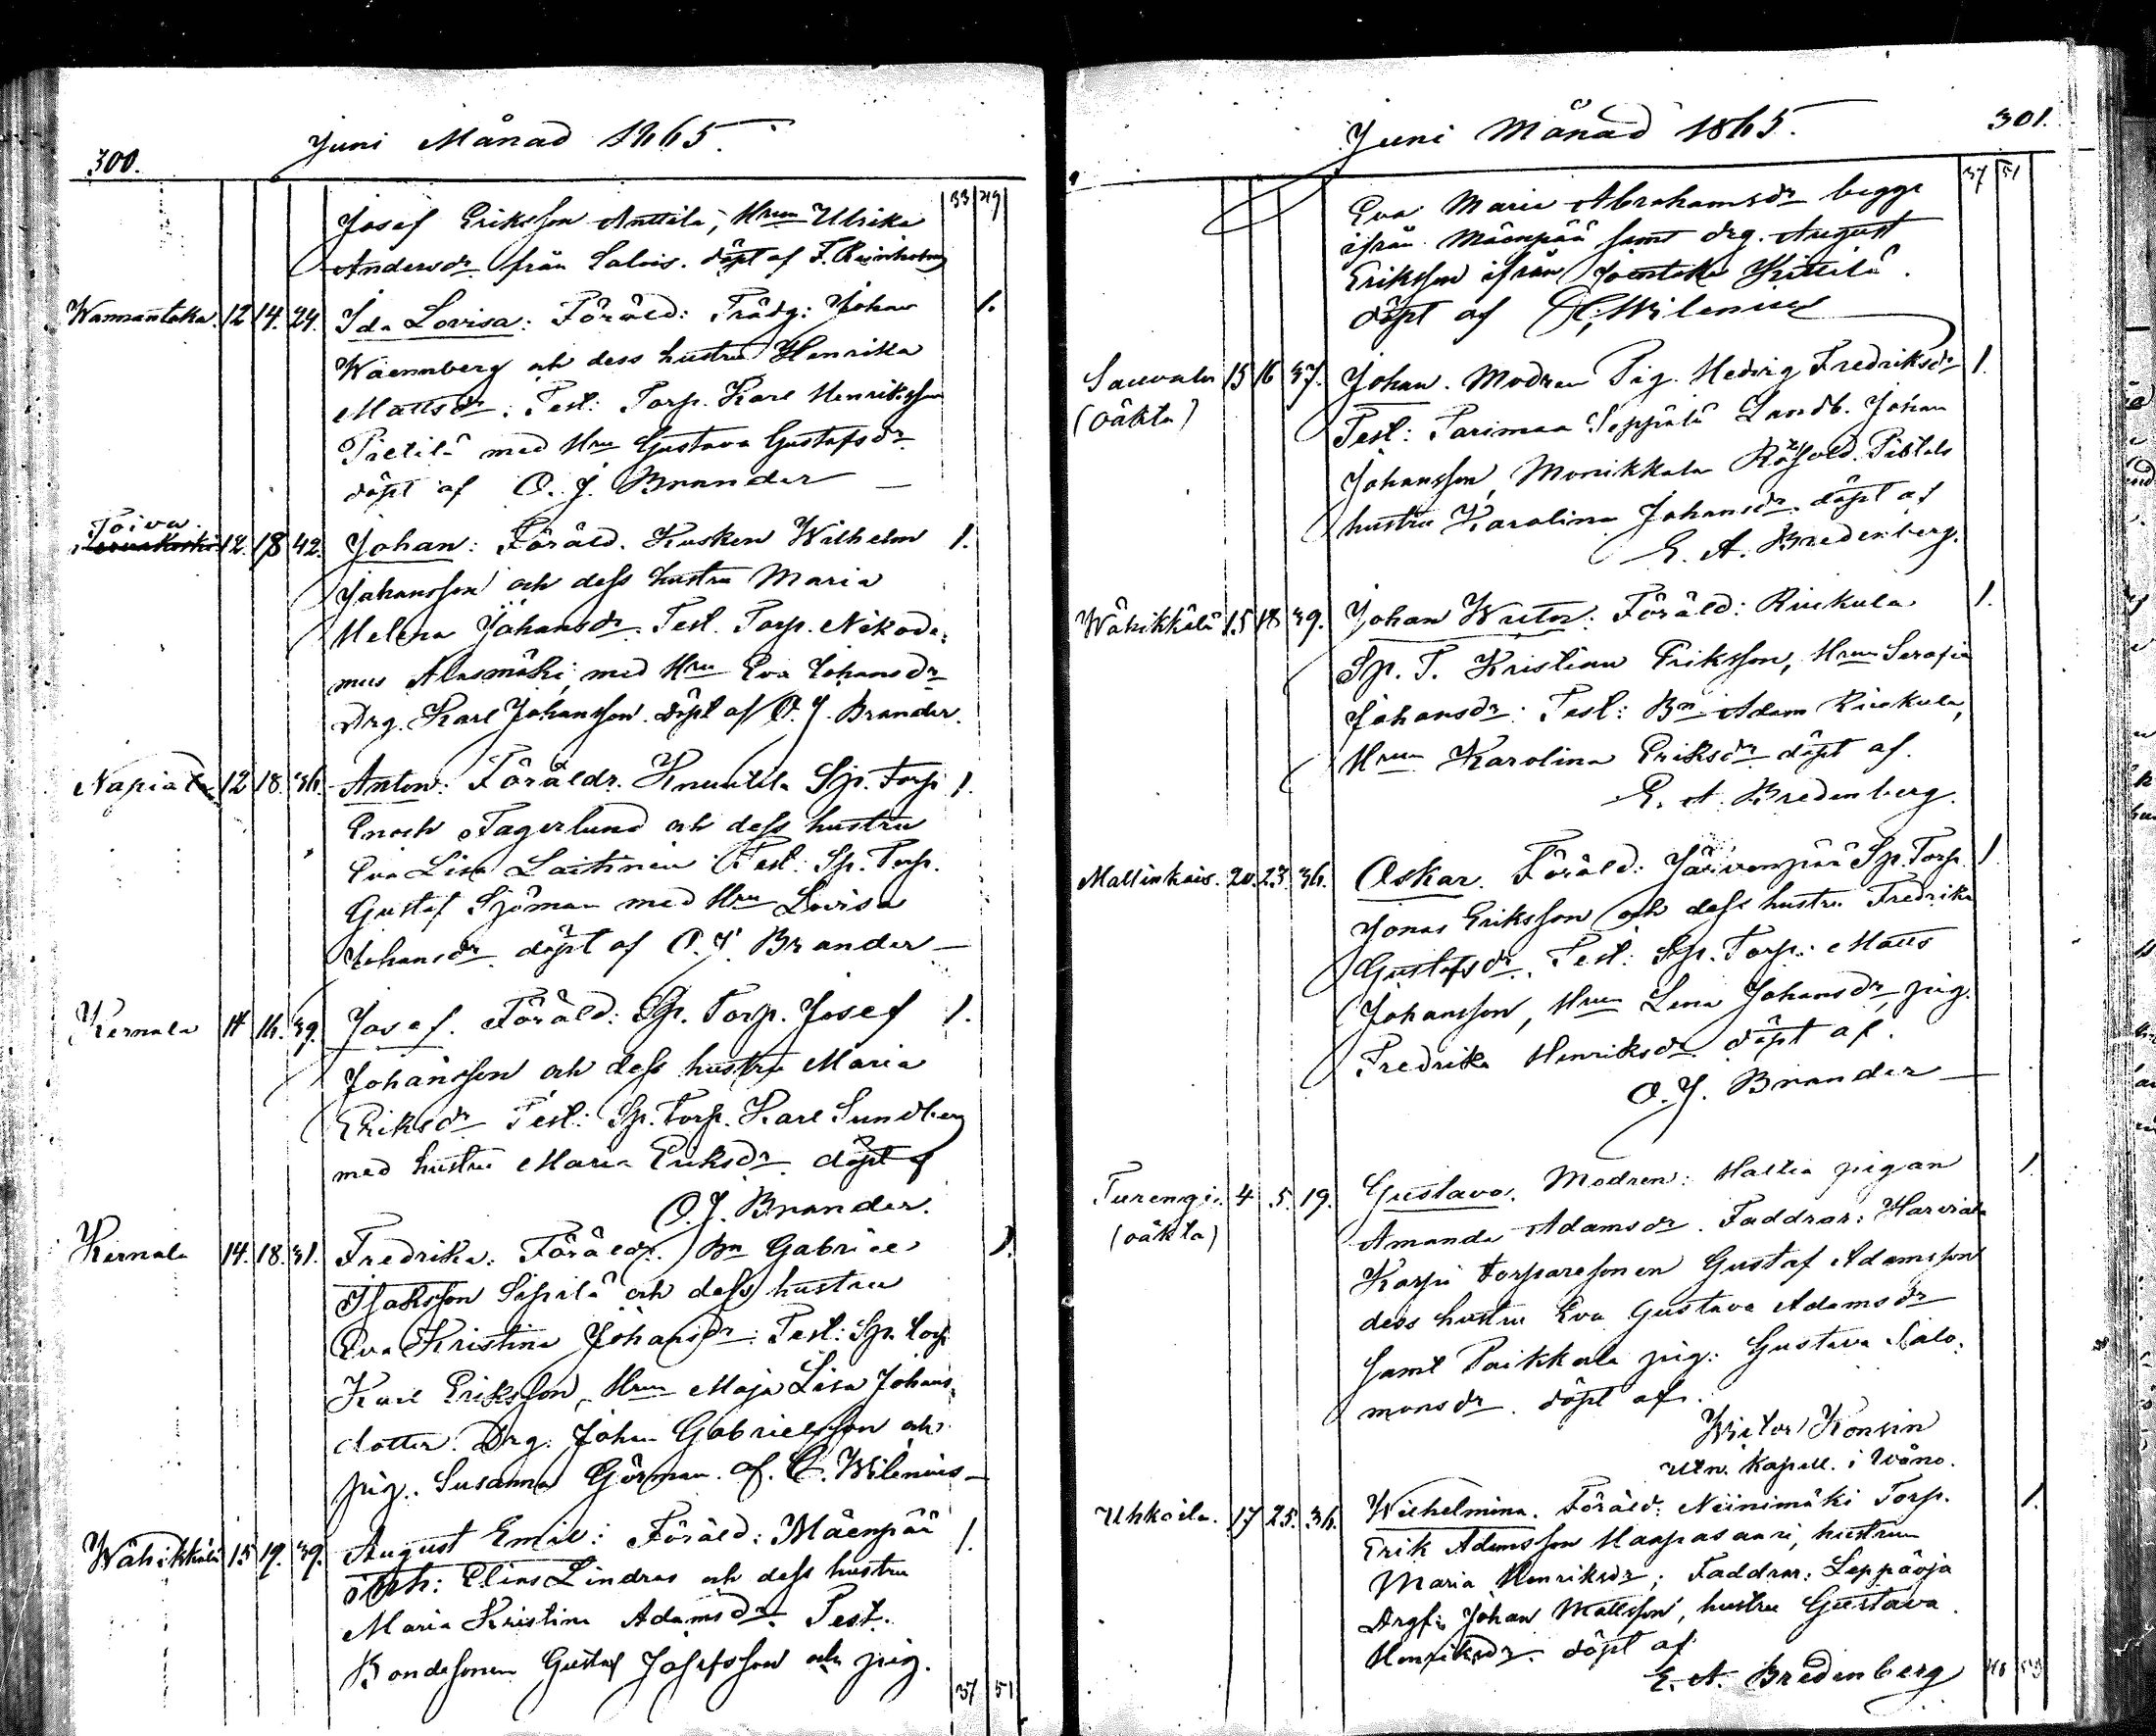 Juni Månad 1865.
300.
33 49
Josef Eriksson Anttila, Hrun Ulrika
Andersdr från Salois. döpt af F. Reinholm
Wannantaka. 12 14. 24. Ida Lovisa: Föräld: Trädg: Johan 1.
Waennberg och dess hustru Henrika
Mattsdr. Test: Torp. Karl Henriksson
Pietilä med Hru Gustava Gustafsdr
döpt af O. J. Brander
Toiva.
12. 18 42. Johan: Föräld. Kusken Wilhelm 1.
Johansson och dess hustru Maria
Helena Johansdr. Test. Torp. Nikode-
mus Alasmäki, med Hru Eva Johansdr
Drg. Karl Johansson. döpt af O. J. Brander.
Napiala 12 18. 36. Anton: Föräldr. Knuutila Sp. Torp 1.
Enoch Fagerlund och dess hustru
Eva Lisa Laitinen Test: Sp. Torp.
Gustaf Sjöman med Hru Lovisa
Johansdr. döpt af O. J. Brander
Kernala 14 16. 39. Josef. Föräld: Sp. Torp. Josef 1.
Johansson och dess hustru Maria
Eriksdr Test: Sp. Torp. Karl Sundberg
med hustru Maria Eriksdr. döpt af
O. J. Brander.
Kernala 14. 18. 31. Fredrika. Föräldr. Bn Gabriel 1.
Isaksson Sipilä och dess hustru
Eva Kristina Johansdr: Test: Sp. torp
Karl Eriksson, Hrun Maja Lisa Johans-
dotter. Drg. Johan Gabrielsson och
pig. Susanna Görman. af. C. Wilenius
Wähikkälä 15 19. 39. August Emil: Föräld: Mäenpää 1.
Elias Lindros och dess hustru
Maria Kristina Adamsdr. Test.
Bondesonen Gustaf Josefsson och pig.
37 51
Juni Månad 1865.
301.
37 51
Eva Maria Abrahamsdr begge
ifrån Mäenpää samt drg. August
Eriksson ifrån Joentaka Kittilä.
döpt af C. Wilenius
Sauvala 15 16 37. Johan. Modren Pig. Hedvig Fredriksdr 1.
(oäkta) Test: Parimaa Seppälä Landb. Johan
Johansson, Monikkala Pistols
hustru Karolina Johansdr. döpt af
E. A. Bredenberg.
Wähikkälä 15 18 39. Johan Wictor: Föräld: Riukula 1.
Sp. T. Kristian Eriksson, Hrun Serafia
Johansdr: Test: Bn Adam Riukula,
Hrun Karolina Eriksdr döpt af.
E. A. Bredenberg.
Mallinkais. 20. 23. 36. Oskar. Föräld: Järvenpää Sp. Torp. 1
Jonas Eriksson och dess hustru Fredrika
Gustafsdr. Test: Sp. Torp: Matts
Johansson, Hrun Lena Johansdr, pig.
Fredrika Henriksdr döpt af.
O. J. Brander
Turengi. 4 5. 19. Gustava. Modren: Hattia pigan 1.
(oäkta) Amanda Adamsdr. Faddrar: Harviala
Karpi torparesonen Gustaf Adamsson
dess hustru Eva Gustava Adamsdr
samt Paikkala pig: Gustava Salo-
monsdr. döpt af.
Victor Konsin
utn. kapell. i Wåno.
Uhkoila. 17 25. 36. Wilhelmina. Föräld: Niinimäki Torp. 1.
Erik Adamsson Haapasaari, hustrun
Maria Henriksdr; Faddrar: Leppäoja
Drgf: Johan Mattsson, hustru Gustava
Henriksdr. döpt af
E. A. Bredenberg